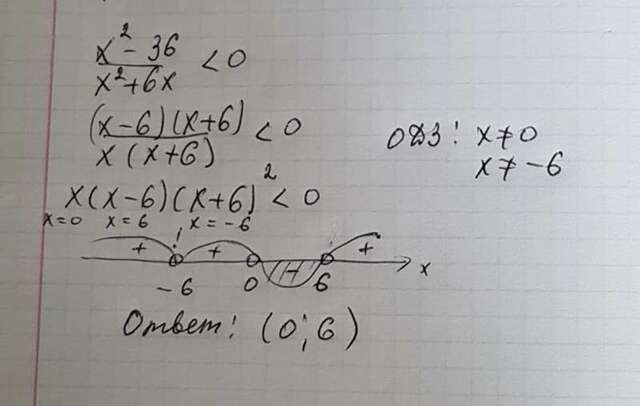 x² - 36 / x² + 6x < 0
(x-6)(x+6) / x(x+6) < 0
ОДЗ: x ≠ 0
x ≠ -6
x(x-6)(x+6)² < 0
x=0 x=6 x=-6
+ + - +
-6 0 6 x
Ответ: (0; 6)